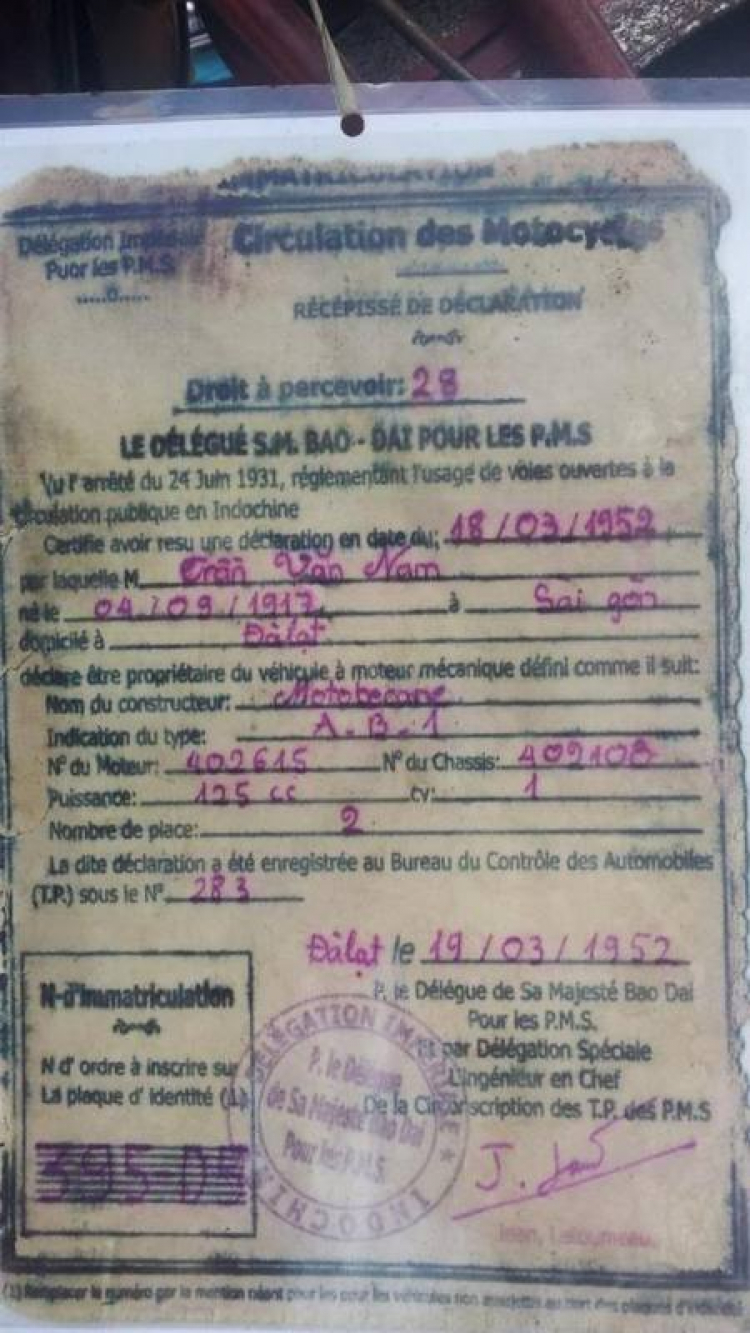 IMMATRICULATION
Délégation Impériale
Puor les P.M.S
.....o.....
Circulation des Motocycles
RÉCÉPISSÉ DE DÉCLARATION
Droit à percevoir: 28
LE DÉLÉGUÉ S.M. BAO - DAI POUR LES P.M.S
Vu l' arrêté du 24 Juin 1931, réglementant l'usage de voies ouvertes à la
circulation publique en Indochine
Certifie avoir resu une déclaration en date du; 18/03/1952
par laquelle M Trần Văn Nam
né le 04/09/1917 à Sài gòn
domicilé à Đàlạt
déclare être propriétaire du véhicule à moteur mécanique défini comme il suit:
Nom du constructeur: Motobecane
Indication du type: A.B.1
N° du Moteur: 402615 N° du Chassis: 402108
Puissance: 125 cc cv: 1
Nombre de place: 2
La dite déclaration a été enregistrée au Bureau du Contrôle des Automobiles
(T.P.) sous le N° 283
Đàlạt le 19/03/1952
P. le Délégue de Sa Majesté Bao Dai
Pour les P.M.S.
Et par Délégation Spéciale
L'ingénieur en Chef
De la Circonscription des T.P. des P.M.S
N-d'Immatriculation
N d' ordre à inscrire sur
La plaque d' identité (1)
395-D
DÉLÉGATION IMPÉRIALE
P. le Délégue
de Sa Majesté Bao Dai
Pour les P.M.S.
INDOCHINE
J.
Jean,
(1) Remplacer le numéro par la mention néant pour les